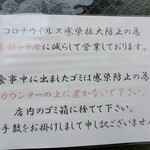 コロナウイルス感染拡大防止の為
に減らして営業しております。
食事中に出ましたゴミは感染防止の為
カウンターの上に置かないで下さい。
店内のゴミ箱に捨てて下さい。
手数をお掛けしまして申し訳ございません